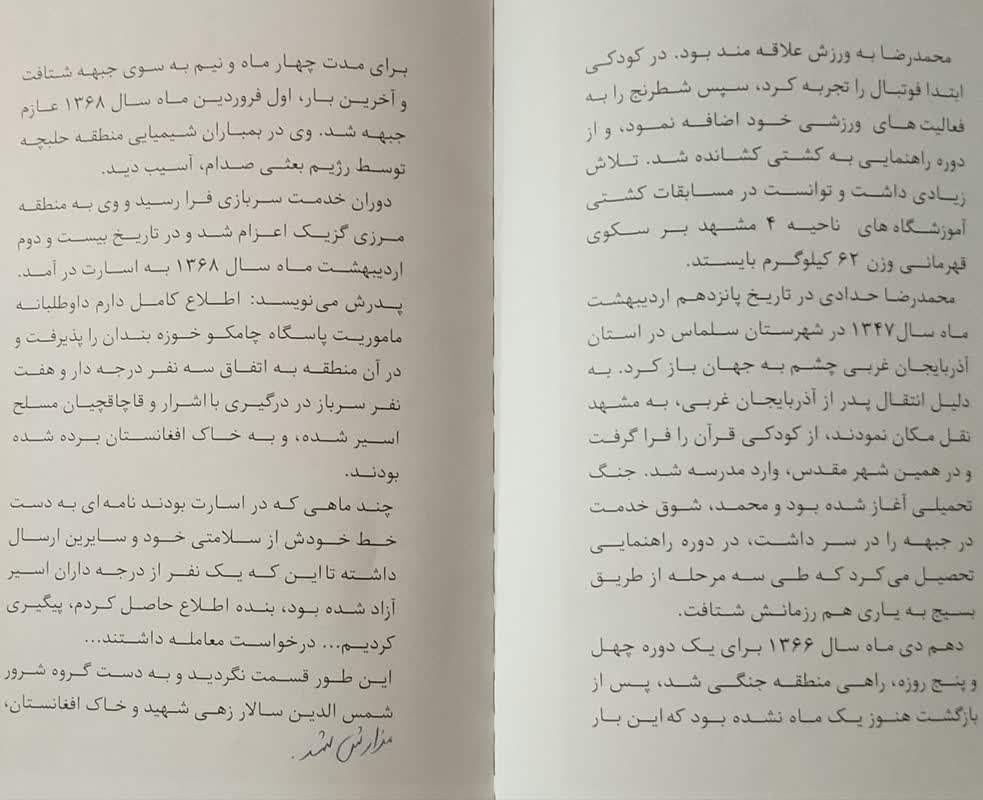 محمدرضا به ورزش علاقه مند بود. در کودکی
ابتدا فوتبال را تجربه کرد، سپس شطرنج را به
فعالیت های ورزشی خود اضافه نمود، و از
دوره راهنمایی به کشتی کشانده شد. تلاش
زیادی داشت و توانست در مسابقات کشتی
آموزشگاه های ناحیه ۴ مشهد بر سکوی
قهرمانی وزن ۶۲ کیلوگرم بایستد.
محمدرضا حدادی در تاریخ پانزدهم اردیبهشت
ماه سال ۱۳۴۷ در شهرستان سلماس در استان
آذربایجان غربی چشم به جهان باز کرد. به
دلیل انتقال پدر از آذربایجان غربی، به مشهد
نقل مکان نمودند، از کودکی قرآن را فرا گرفت
و در همین شهر مقدس، وارد مدرسه شد. جنگ
تحمیلی آغاز شده بود و محمد، شوق خدمت
در جبهه را در سر داشت، در دوره راهنمایی
تحصیل می کرد که طی سه مرحله از طریق
بسیج به یاری هم رزمانش شتافت.
دهم دی ماه سال ۱۳۶۶ برای یک دوره چهل
و پنج روزه، راهی منطقه جنگی شد، پس از
بازگشت هنوز یک ماه نشده بود که این بار
برای مدت چهار ماه و نیم به سوی جبهه شتافت
و آخرین بار، اول فروردین ماه سال ۱۳۶۸ عازم
جبهه شد. وی در بمباران شیمیایی منطقه حلبچه
توسط رژیم بعثی صدام، آسیب دید.
دوران خدمت سربازی فرا رسید و وی به منطقه
مرزی گزیک اعزام شد و در تاریخ بیست و دوم
اردیبهشت ماه سال ۱۳۶۸ به اسارت در آمد.
پدرش می نویسد: اطلاع کامل دارم داوطلبانه
ماموریت پاسگاه چامکو خوزه بندان را پذیرفت و
در آن منطقه به اتفاق سه نفر درجه دار و هفت
نفر سرباز در درگیری با اشرار و قاچاقچیان مسلح
اسیر شده، و به خاک افغانستان برده شده
بودند.
چند ماهی که در اسارت بودند نامه ای به دست
خط خودش از سلامتی خود و سایرین ارسال
داشته تا این که یک نفر از درجه داران اسیر
آزاد شده بود، بنده اطلاع حاصل کردم، پیگیری
کردیم... درخواست معامله داشتند...
این طور قسمت نگردید و به دست گروه شرور
شمس الدین سالار زهی شهید و خاک افغانستان،
مزارش شد.